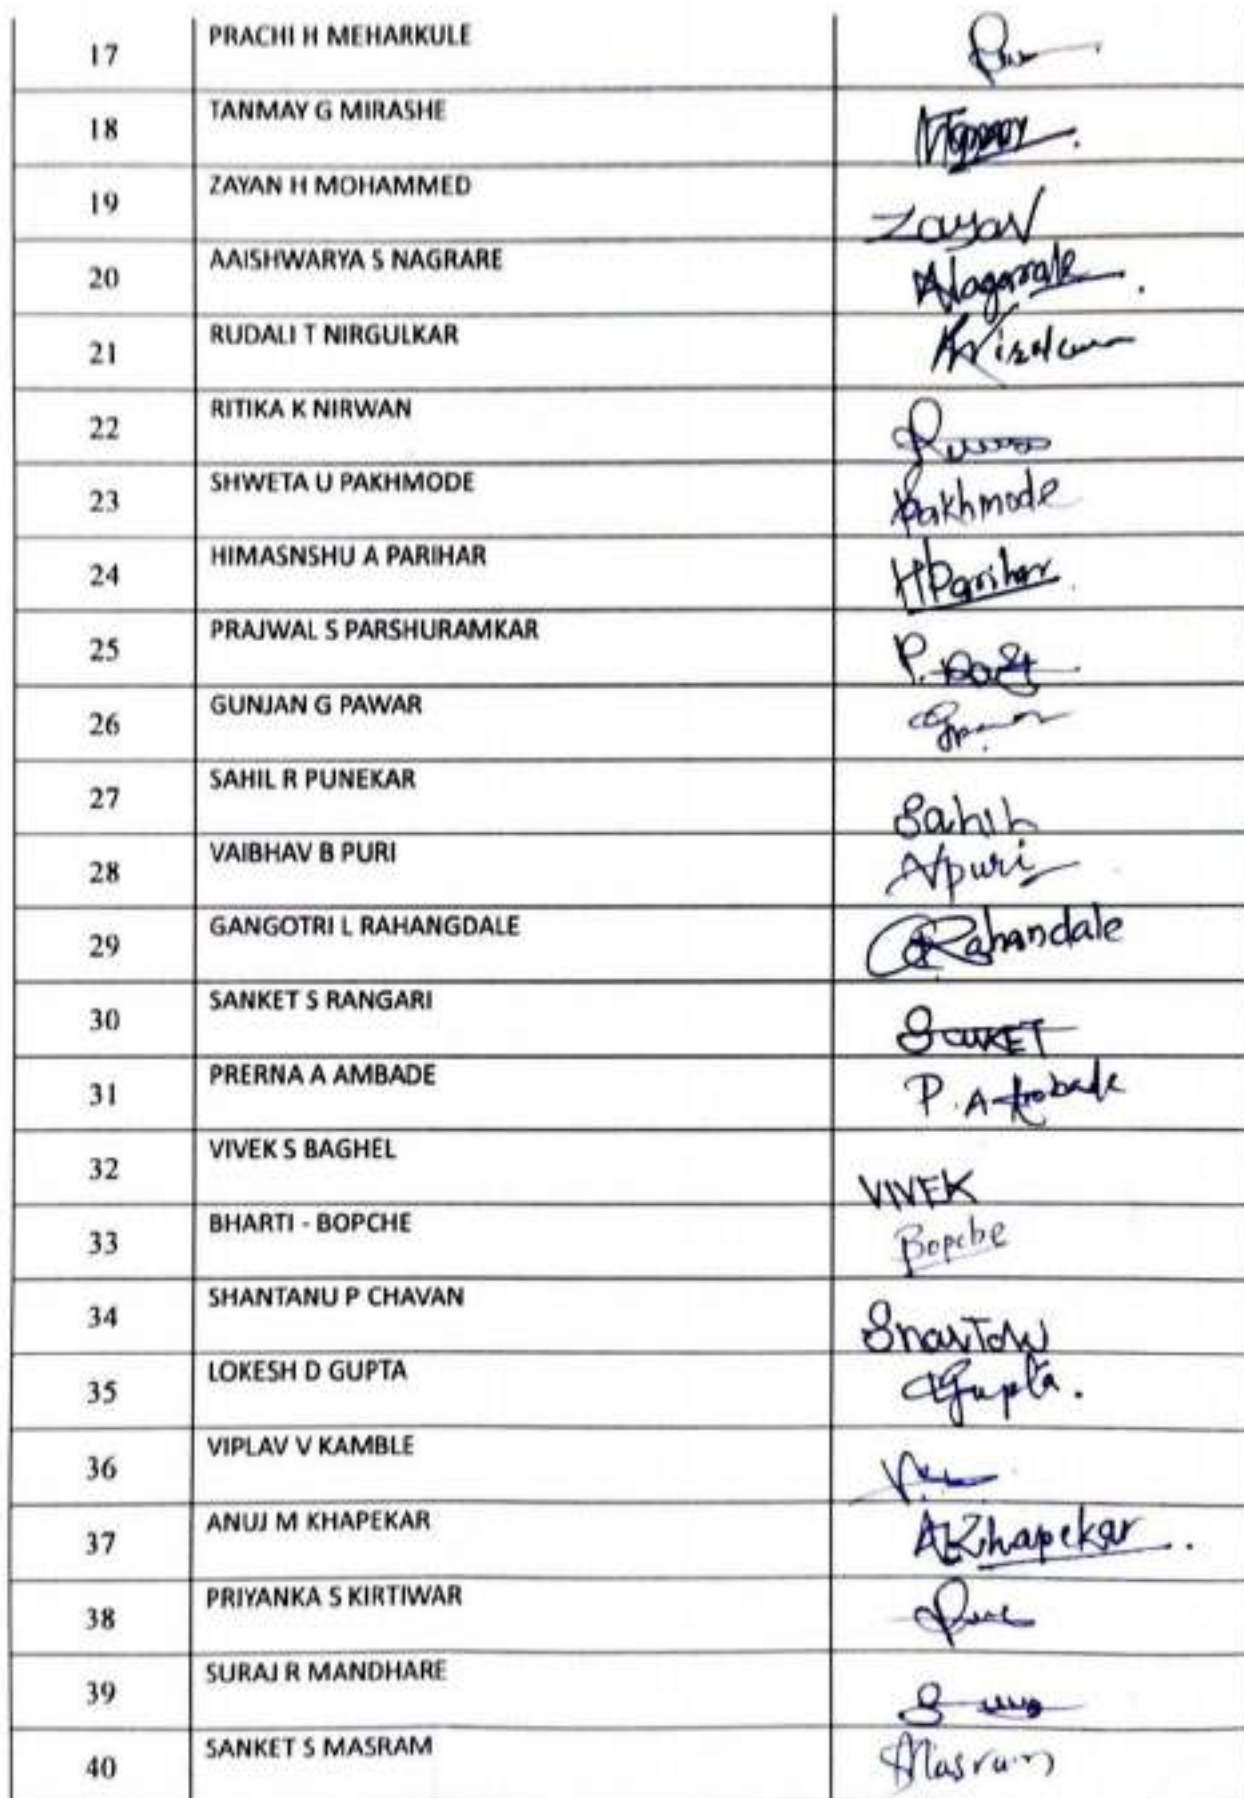 17 PRACHI H MEHARKULE
18 TANMAY G MIRASHE
19 ZAYAN H MOHAMMED Zayan
20 AAISHWARYA S NAGRARE
21 RUDALI T NIRGULKAR
22 RITIKA K NIRWAN
23 SHWETA U PAKHMODE Pakhmode
24 HIMASNSHU A PARIHAR HParihar
25 PRAJWAL S PARSHURAMKAR
26 GUNJAN G PAWAR
27 SAHIL R PUNEKAR Sahil
28 VAIBHAV B PURI Vpuri
29 GANGOTRI L RAHANGDALE GRahandale
30 SANKET S RANGARI SANKET
31 PRERNA A AMBADE P. Ambade
32 VIVEK S BAGHEL VIVEK
33 BHARTI - BOPCHE Bopche
34 SHANTANU P CHAVAN
35 LOKESH D GUPTA Gupta.
36 VIPLAV V KAMBLE
37 ANUJ M KHAPEKAR AKhapekar.
38 PRIYANKA S KIRTIWAR
39 SURAJ R MANDHARE
40 SANKET S MASRAM Masram